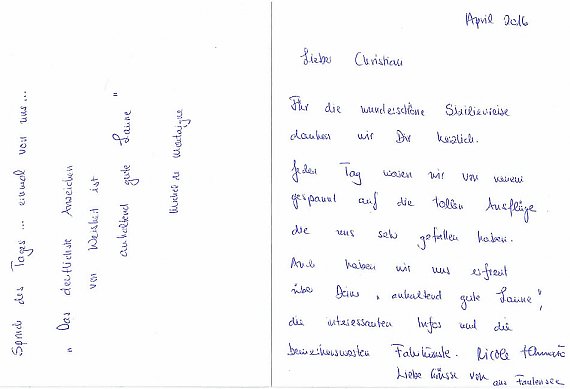 Spruch des Tages ... einmal von uns ...
" Das deutlichste Anzeichen
von Weisheit ist
anhaltend gute Laune "
Michel de Montaigne
April 2016
Lieber Christian
Für die wunderschöne Sizilienreise
danken wir Dir herzlich.
Jeden Tag waren wir von neuem
gespannt auf die tollen Ausflüge
die uns sehr gefallen haben.
Auch haben wir uns erfreut
über Deine „anhaltend gute Laune",
die interessanten Infos und die
bemerkenswerten Fahrkünste. Nicole +
Liebe Grüsse von aus Faulensee